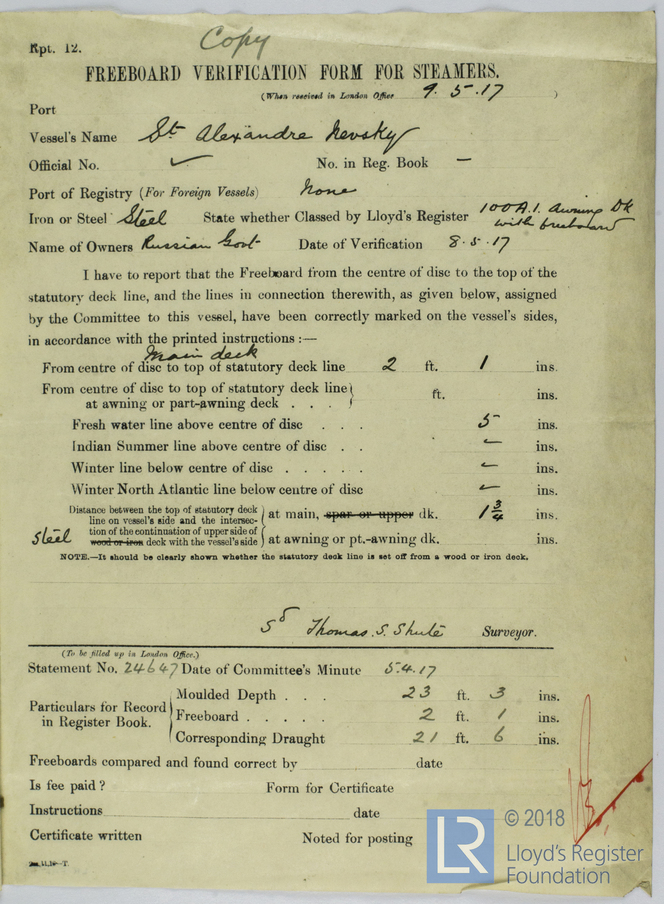 Rpt. 12.
Copy
FREEBOARD VERIFICATION FORM FOR STEAMERS.
(When received in London Office 9.5.17 )
Port
Vessel's Name St Alexandre Nevsky
Official No. ✓ No. in Reg. Book —
Port of Registry (For Foreign Vessels) None
Iron or Steel Steel State whether Classed by Lloyd's Register 100A.1. Awning Dk
with freeboard
Name of Owners Russian Govt Date of Verification 8.5.17
I have to report that the Freeboard from the centre of disc to the top of the
statutory deck line, and the lines in connection therewith, as given below, assigned
by the Committee to this vessel, have been correctly marked on the vessel's sides,
in accordance with the printed instructions :—
Main deck
From centre of disc to top of statutory deck line 2 ft. 1 ins.
From centre of disc to top of statutory deck line
at awning or part-awning deck . . . ft. ins.
Fresh water line above centre of disc . . . 5 ins.
Indian Summer line above centre of disc . . ins.
Winter line below centre of disc . . . . . ins.
Winter North Atlantic line below centre of disc ins.
Distance between the top of statutory deck
line on vessel's side and the intersec- at main, spar or upper dk. 1 3/4 ins.
tion of the continuation of upper side of
Steel wood or iron deck with the vessel's side at awning or pt.-awning dk. ins.
NOTE.—It should be clearly shown whether the statutory deck line is set off from a wood or iron deck.
Sd Thomas. S. Shute Surveyor.
(To be filled up in London Office.)
Statement No. 24647 Date of Committee's Minute 5.4.17
Particulars for Record
in Register Book.
Moulded Depth . . . 23 ft. 3 ins.
Freeboard . . . . . 2 ft. 1 ins.
Corresponding Draught 21 ft. 6 ins.
Freeboards compared and found correct by date
Is fee paid ? Form for Certificate
Instructions date
Certificate written Noted for posting
LR
© 2018
Lloyd's Register
Foundation